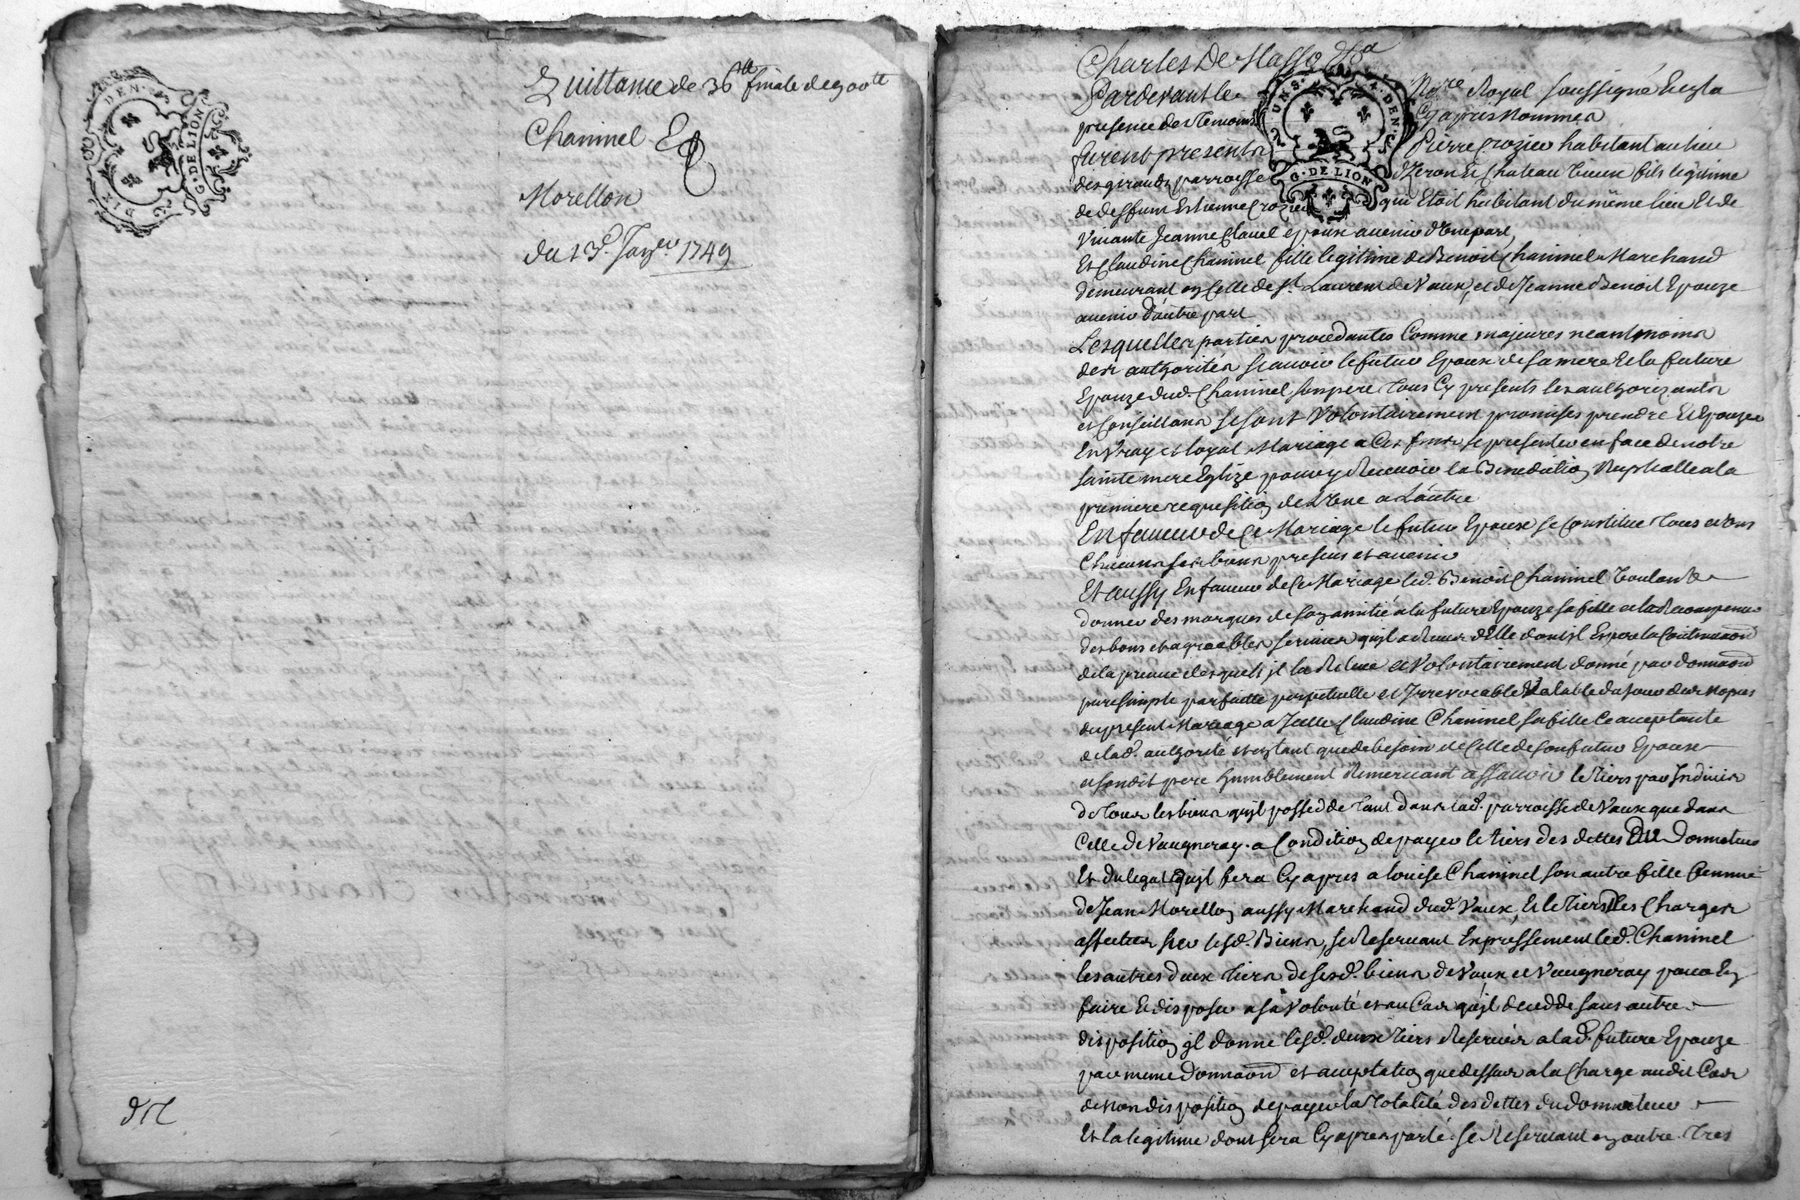 DIX DEN.
G. DE LION
Quittance de 36lt finale de 900lt
Chaninel Et
Morellon
du 13e. Janer. 1749
Charles De Masso
Pardevant le Nore Royal soussigné Et en la
presence des temoins Cy apres nommes
furent presents Pierre Crozier habitant au lieu
UN S. 4. DEN.
G. DE LION
des giraud parroisse d'Izeron Et Chateau Vieux fils legitime
de deffunt Estienne Crozier qui Etoit habitant du même lieu Et de
Vivante Jeanne Clavel epoux avenir d'Une part
Et Claudine Chaninel fille legitime de Benoit Chaninel Marchand
demeurant en Celle de St. Laurent de Vaux, et de Jeanne Benoit Epouze
avenir d'autre part
Lesquelles parties procedantes Comme majeures neantmoins
des authorités scavoir le futur Epoux de sa mere Et la future
Epouze dud. Chaninel son pere tous Cy presents les authorizants
et Conseillans se sont Volontairement promises prendre Et Epouzer
En Vray et loyal Mariage a Ces fins se presenter en face de notre
sainte mere Eglize pour y Recevoir la Benediction Nuptialle a la
premiere requisition de L'Une a L'autre
En faveur de Ce Mariage le futur Epoux se Constitue tous et Uns
Chacuns ses biens presens et avenir
Et aussy En faveur de Ce Mariage led. Benoit Chaninel Voulant
donner des marques de son amitié a la future Epouze sa fille et la Recompenser
des bons et agreables services qu'il a Reçus d'Elle dont il Espere la Continuaon
de la preuve desquels il la Releve et Volontairement donné par donnaon
pure simple parfaitte perpetuelle et Irrevocable Valable du jour des nopces
du present Mariage a Icelle Claudine Chaninel sa fille Ce acceptante
de lad. authorité et en tant que de besoin de Celle de son futur Epoux
et sondit pere humblement Remerciant assavoir le tiers par Indivis
de tous les biens qu'il possedde tant dans lad. parroisse de Vaux que dans
Celle de Vaugneray. a Condition de payer le tiers des dettes DU Donnateur
Et du legat qu'il fera Cy apres a louise Chaninel son autre fille femme
de Jean Morellon aussy Marchand dud. Vaux, Et le tiers Des Charges
affectées sur lesd. Biens, se Reservant Expressement led. Chaninel
les autres deux tiers de sesd. biens de Vaux et Vaugneray pour En
faire Et disposer a sa Volonté et au Cas qu'il decedde sans autre
disposition il donne lesd. deux tiers Reservés a lad. future Epouze
par meme donnaon et acceptation que dessus a la Charge audit Cas
de non disposition de payer la totalité des dettes du donnateur
Et la legitime dont sera Cy apres parlé. Se Reservant en outre tres